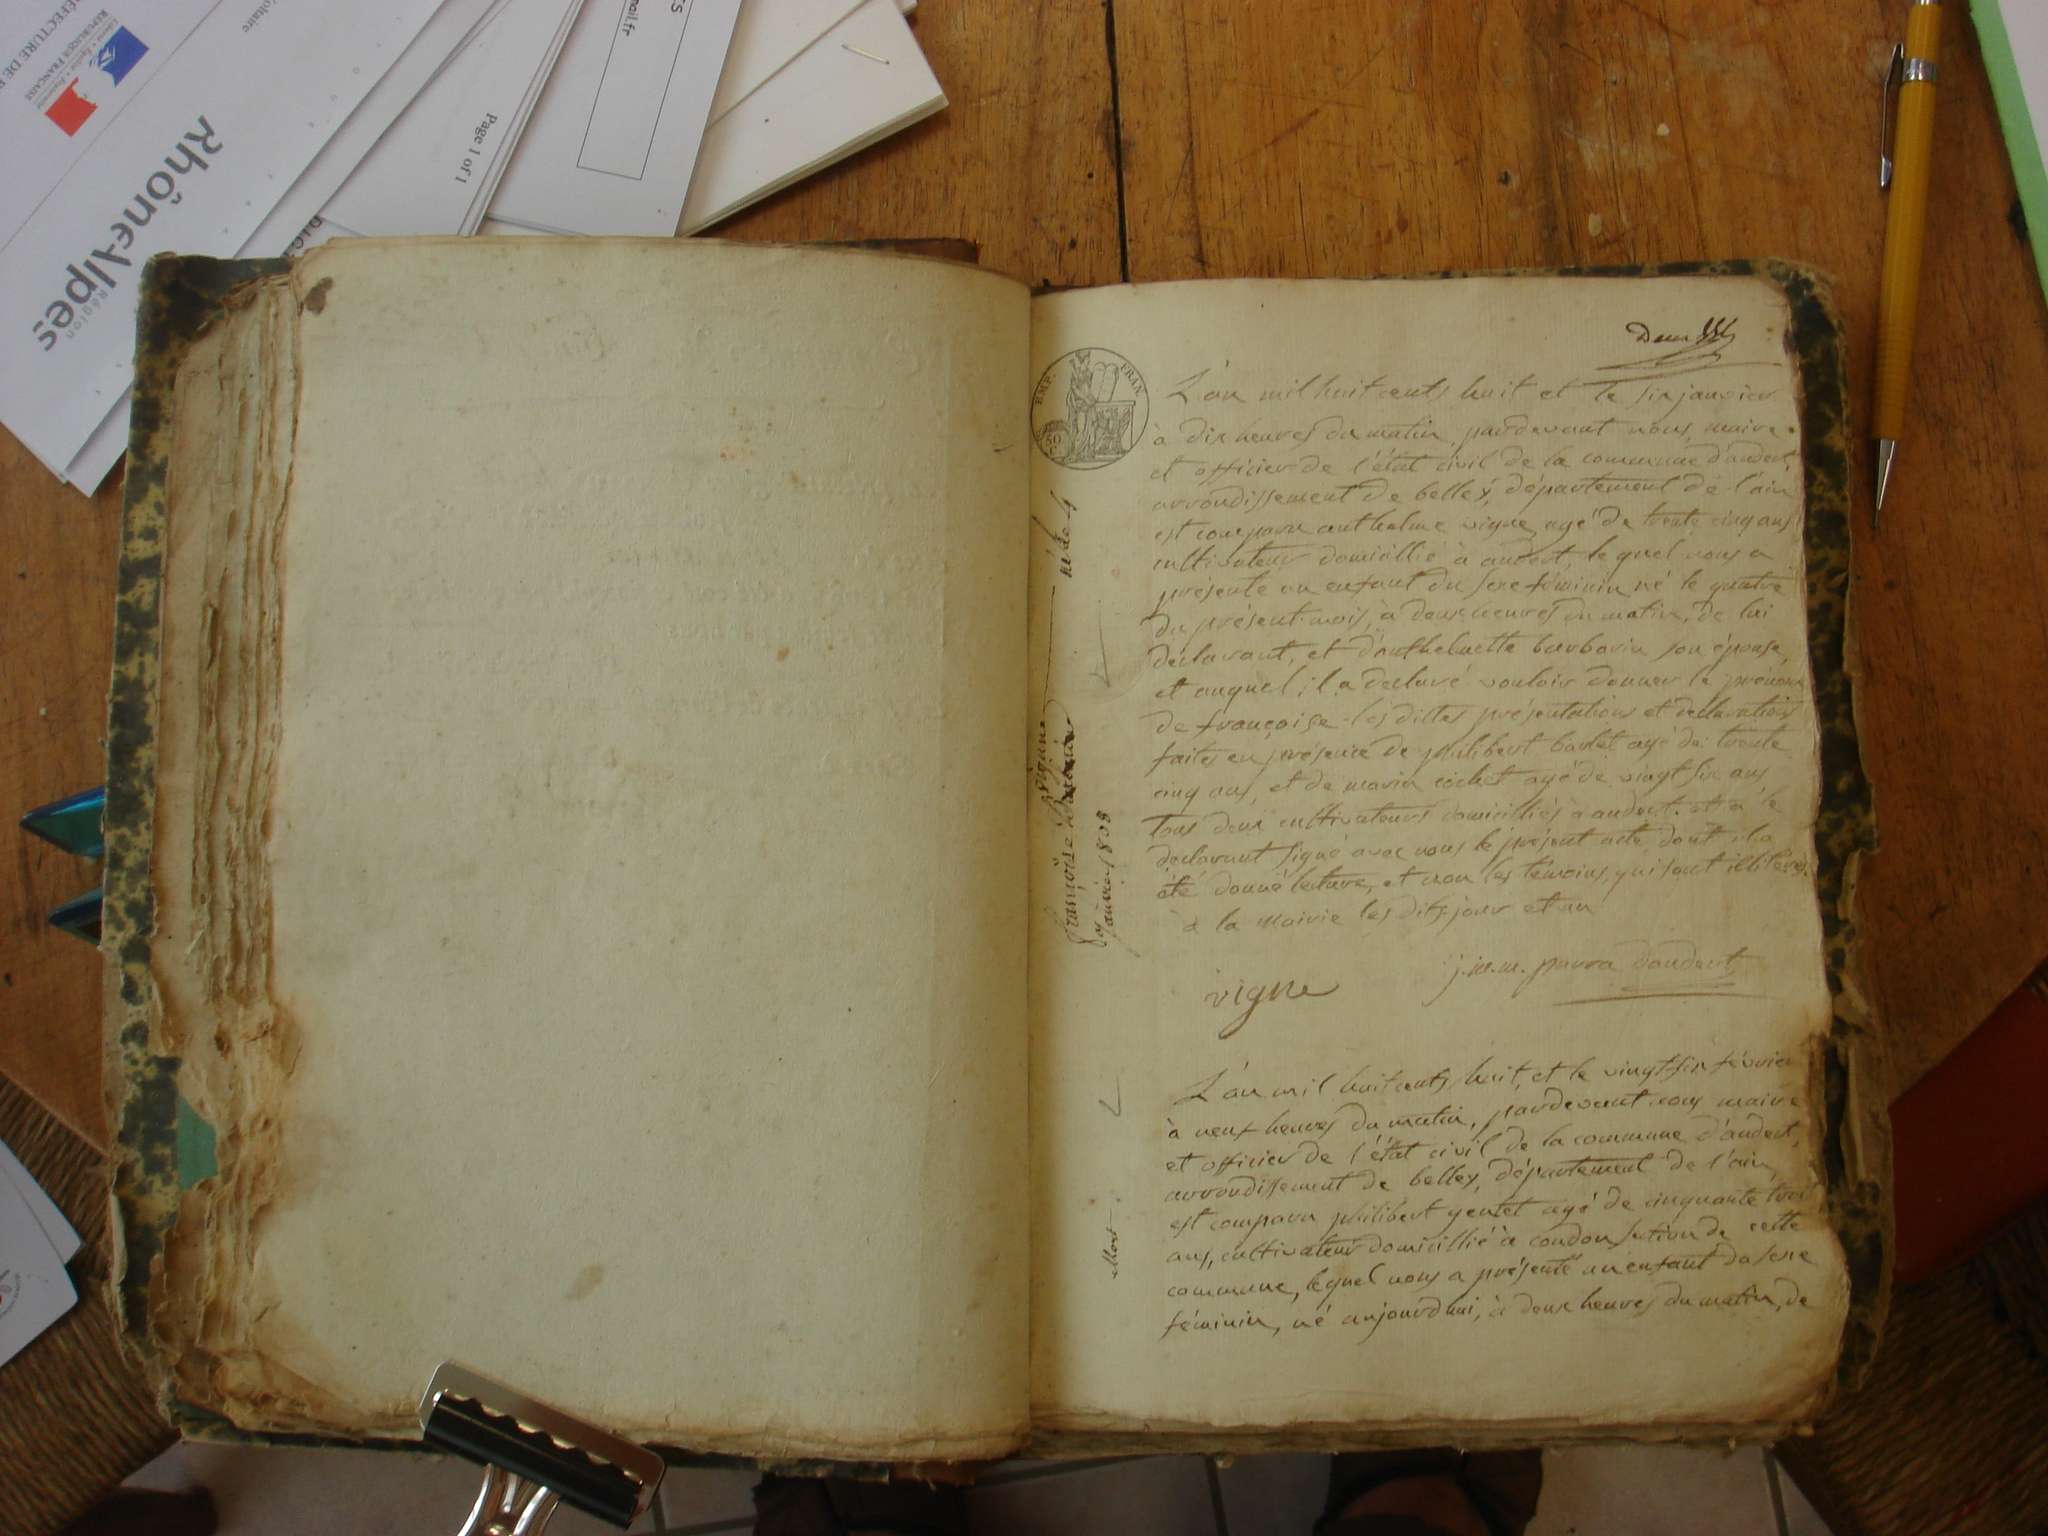 PRÉFECTURE DE
Liberté • Égalité • Fraternité
RÉPUBLIQUE FRANÇAISE
Voltaire
Rhône-Alpes
Région
Page 1 of 1
mail.fr
EMP. FRAN.
50
C
Deux
L'an mil huit cents huit et le six janvier
à dix heures du matin, pardevant nous, maire
et officier de l'état civil de la commune d'andert,
arrondissement de belley, département de l'ain
est comparu anthelme vigne, agé de trente cinq ans
cultivateur domicillié à andert, lequel nous a
présenté un enfant du sexe féminin né le quatre
du présent mois, à deux heures du matin, de lui
déclarant, et d'anthelmette barbarin son épouse,
et auquel il a declaré vouloir donner le prénom
de françoise. les dittes présentations et déclarations
faites en présence de philibert barlet agé de trente
cinq ans, et de marin cochet agé de vingt six ans
tous deux cultivateurs domicilliés à andert. et a le
declarant signé avec nous le présent acte dont il a
été donné lecture, et non les témoins, qui sont illiterés.
à la mairie les dits jour et an
vigne
j. m. m. parra dandert
françoise vigne
Barbarin
né le 4
janvier 1808
L'an mil huit cents huit, et le vingt-six février
à neuf heures du matin, pardevant nous maire
et officier de l'état civil de la commune d'andert,
arrondissement de belley, département de l'ain,
est comparu philibert gentet agé de cinquante trois
ans, cultivateur domicillié à condon section de cette
commune, lequel nous a présenté un enfant du sexe
féminin, né aujourdhui, à deux heures du matin, de
Mort